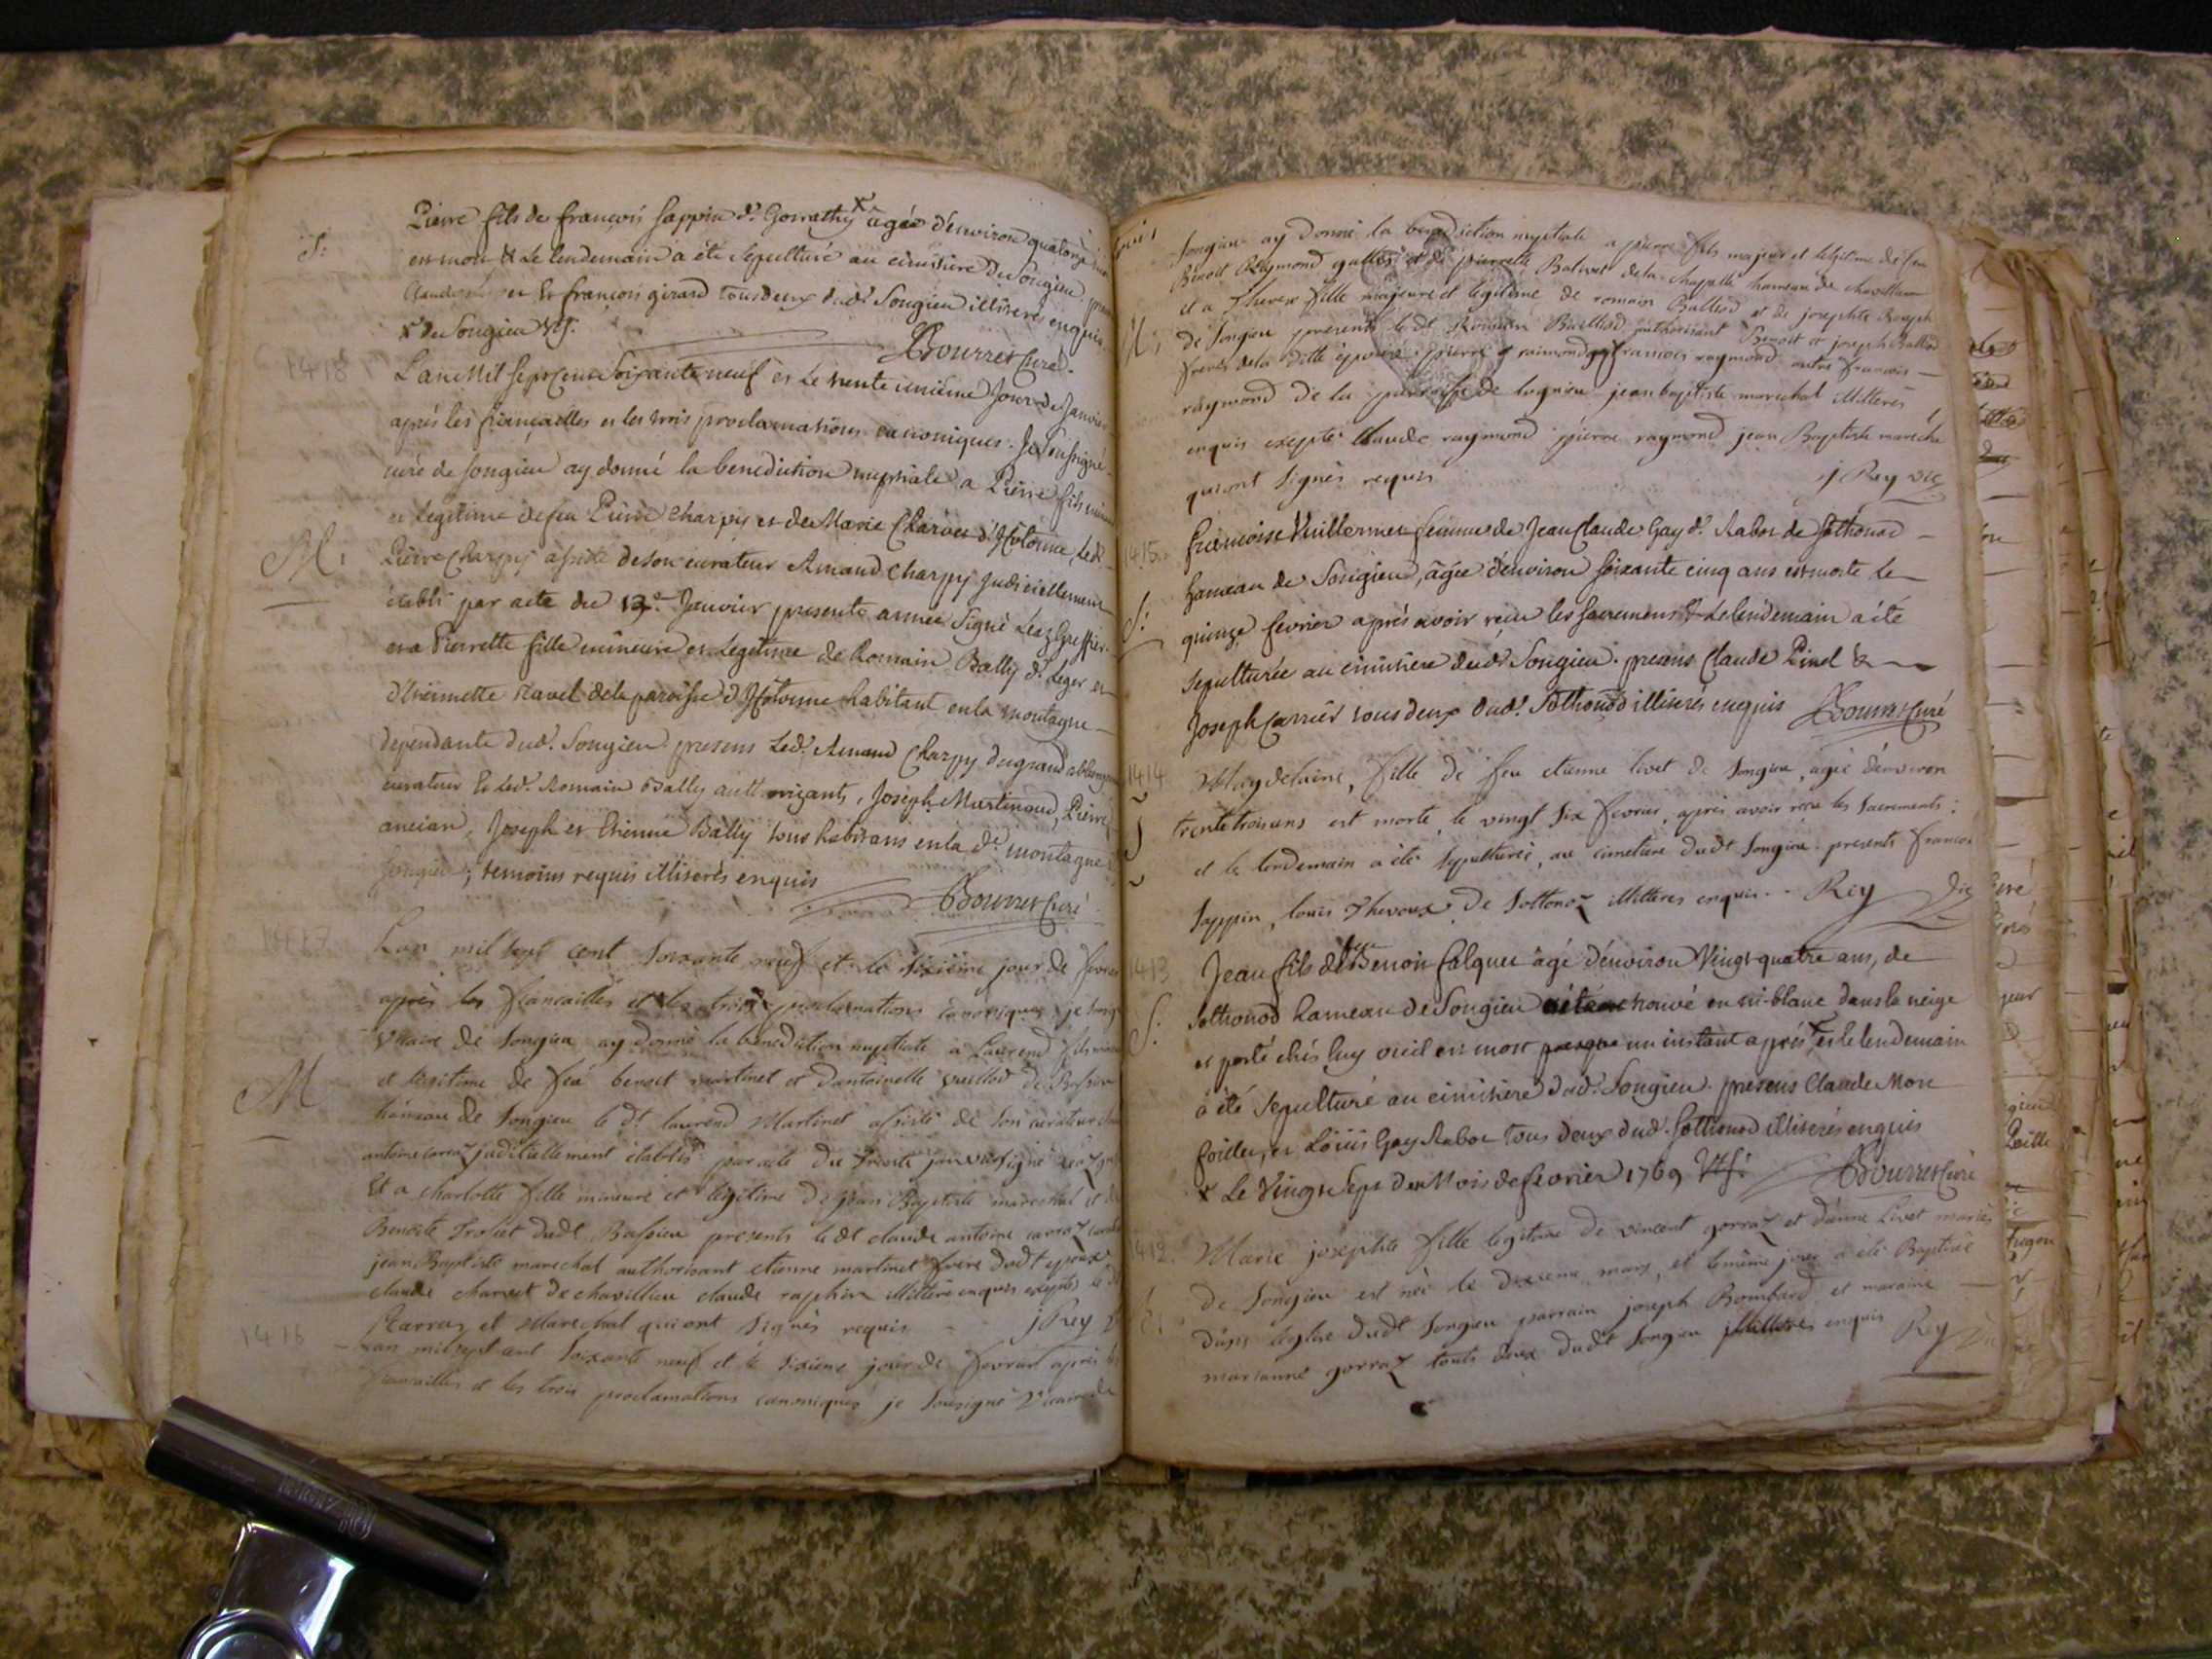 S:
Pierre fils de françois sappin dt. Gorrathy x agée d'environ quatorze
est mort & Le lendemain a été Sepulturé au cimitiere Du Songieu
Claude et françois girard tous deux dudt Songieu illiterés enquis
x de Songieu
Bourret Curé
1418
L'an Mil Sept Cent Soixante neuf et Le trente unième Jour de Janvier
après les fiançailles et les trois proclamations canoniques. Je Soussigné
curé de Songieu ay donné la benediction nuptiale a Pierre fils
et Legitime de feu Pierre Charpy et de Marie Charvet d'Hotonne, Ledt
M:
Pierre Charpy assisté de son curateur Amand Charpy Judiciellement
établi par acte du 13e Janvier presente année Signé Greffier
et a Pierrette fille mineure et Legitime de Romain Bally dt. Leger et
d'Etiennette ravet de la paroisse d'Hotonne habitant en la montagne
dependante dudt. Songieu presens Ledt. Amand Charpy du grand
curateur & ledt. Romain Bally authorizants, Joseph Martinaud, Pierre
ancian, Joseph et Etienne Bally tous habitans en la de. montagne
Songieu; temoins requis illiterés enquis
Bourret Curé
1417
L'an mil sept cent Soixante neuf et le sixième jour de fevrier
après les fiancailles et les trois proclamations canoniques je
Vicaire de Songieu ay donné la benediction nuptiale a Laurend
et legitime de feu benoit martinet et d'antoinette vuillod de Bassieu
M
hameau de Songieu le dt laurend Martinet assisté de Son curateur
antoine carraz juditiellement établis par acte du trente janvier signé
Et a charlotte fille mineure et legitime de jean Baptiste mareschal et de
Benoite trolliet dudt Bassieu presents le dt claude antoine carraz
jean Baptiste marechal authorisant etienne martinet frere dudt epoux,
claude charvet de chavillieu claude raphin illitéré enquis exeptés le
Carraz et Marechal qui ont Signés requis - j Rey
1416
L'an mil sept cent Soixante neuf et le Sixieme jour de fevrier après les
fiancailles et les trois proclamations canoniques je Sousigné Vicaire de
Songieu ay Donné la benediction nuptiale a pierre fils majeur et legitime de feu
Benoit Raymond et de pierrette Balivet de la Chapelle hameau de chavillieu
et a Therese fille majeure et legitime de romain Balliod et de josephte
M;
de Songieu presents ledt Romain Balliod authorisant Benoit et joseph Balliod
freres de la ditte épouse. pierre raimond françois raymond autre françois
raymond de la parroisse de lognieu jean baptiste marechal illiteres
enquis exepté Claude raymond pierre raymond jean Baptiste marecha
qui ont Signés requis
j Rey vic
1415
françoise Vuillermet femme de Jean Claude Gay dt. Rabot de Sothonod
hameau de Songieu, âgée d'environ soixante cinq ans est morte Le
S:
quinze fevrier après avoir reçu les sacremens & Le lendemain a été
sepulturée au cimitiere dudt Songieu. presens Claude Pinel &
Joseph Carrier tous deux dudt. Sothonod illiterés enquis Bourret Curé
1414
Magdelaine, fille de feu etienne livet de Songieu, agée d'environ
S
trente trois ans est morte le vingt Six fevrier, après avoir reçu les Sacrements:
et le lendemain a été Sepulturée, au cimetiere dudt Songieu presents francois
Sappin, louis Thevoux de Sottonoz illitteres enquis. Rey Vic
1413
Jean fils de feu Benoit falquet âgé d'environ Vingt quatre ans, de
S:
Sothonod hameau de Songieu trouvé en ni-blanc dans la neige
et porté chés luy oucil est mort presque un instant après x et le lendemain
a été Sepulturé au cimitiere dudt. Songieu. presens Claude Mon
et Loüis Gay Rabot tous deux dudt. Sothonod illiterés enquis
x Le Vingt Sept du Mois de fevrier 1769 Bourret Curé
1412.
Marie josephte fille legitime de vincent gorraz et d'anne Livet mariés
de Songieu est née le dixieme mars, et le même jour a été Baptisée
b,
dans l'eglise dudt Songieu parrain joseph Bombard et maraine
marianne gorraz touts deux dudt Songieu illitterés enquis Rey Vic